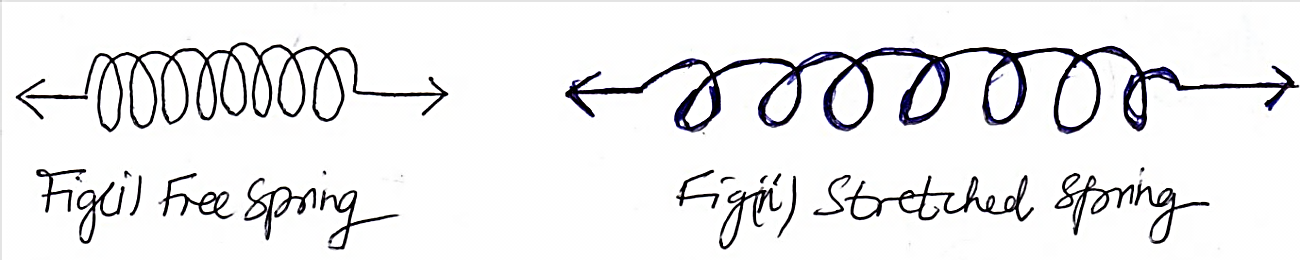 Fig(i) Free Spring
Fig(ii) Stretched Spring